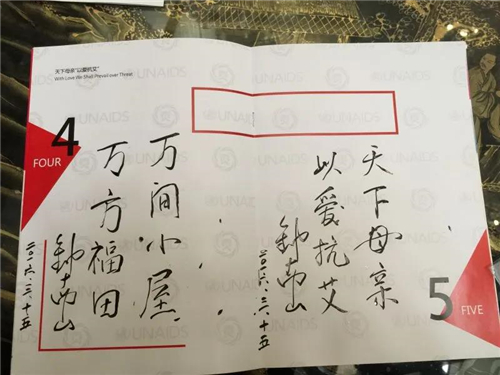 天下母亲"以爱抗艾"
With Love We Shall Prevail over Threat
4
FOUR
万间小屋
万方福田
二〇一六、三、十五
天下母亲
以爱抗艾
二〇一六、三、十五
5
FIVE
UNAIDS